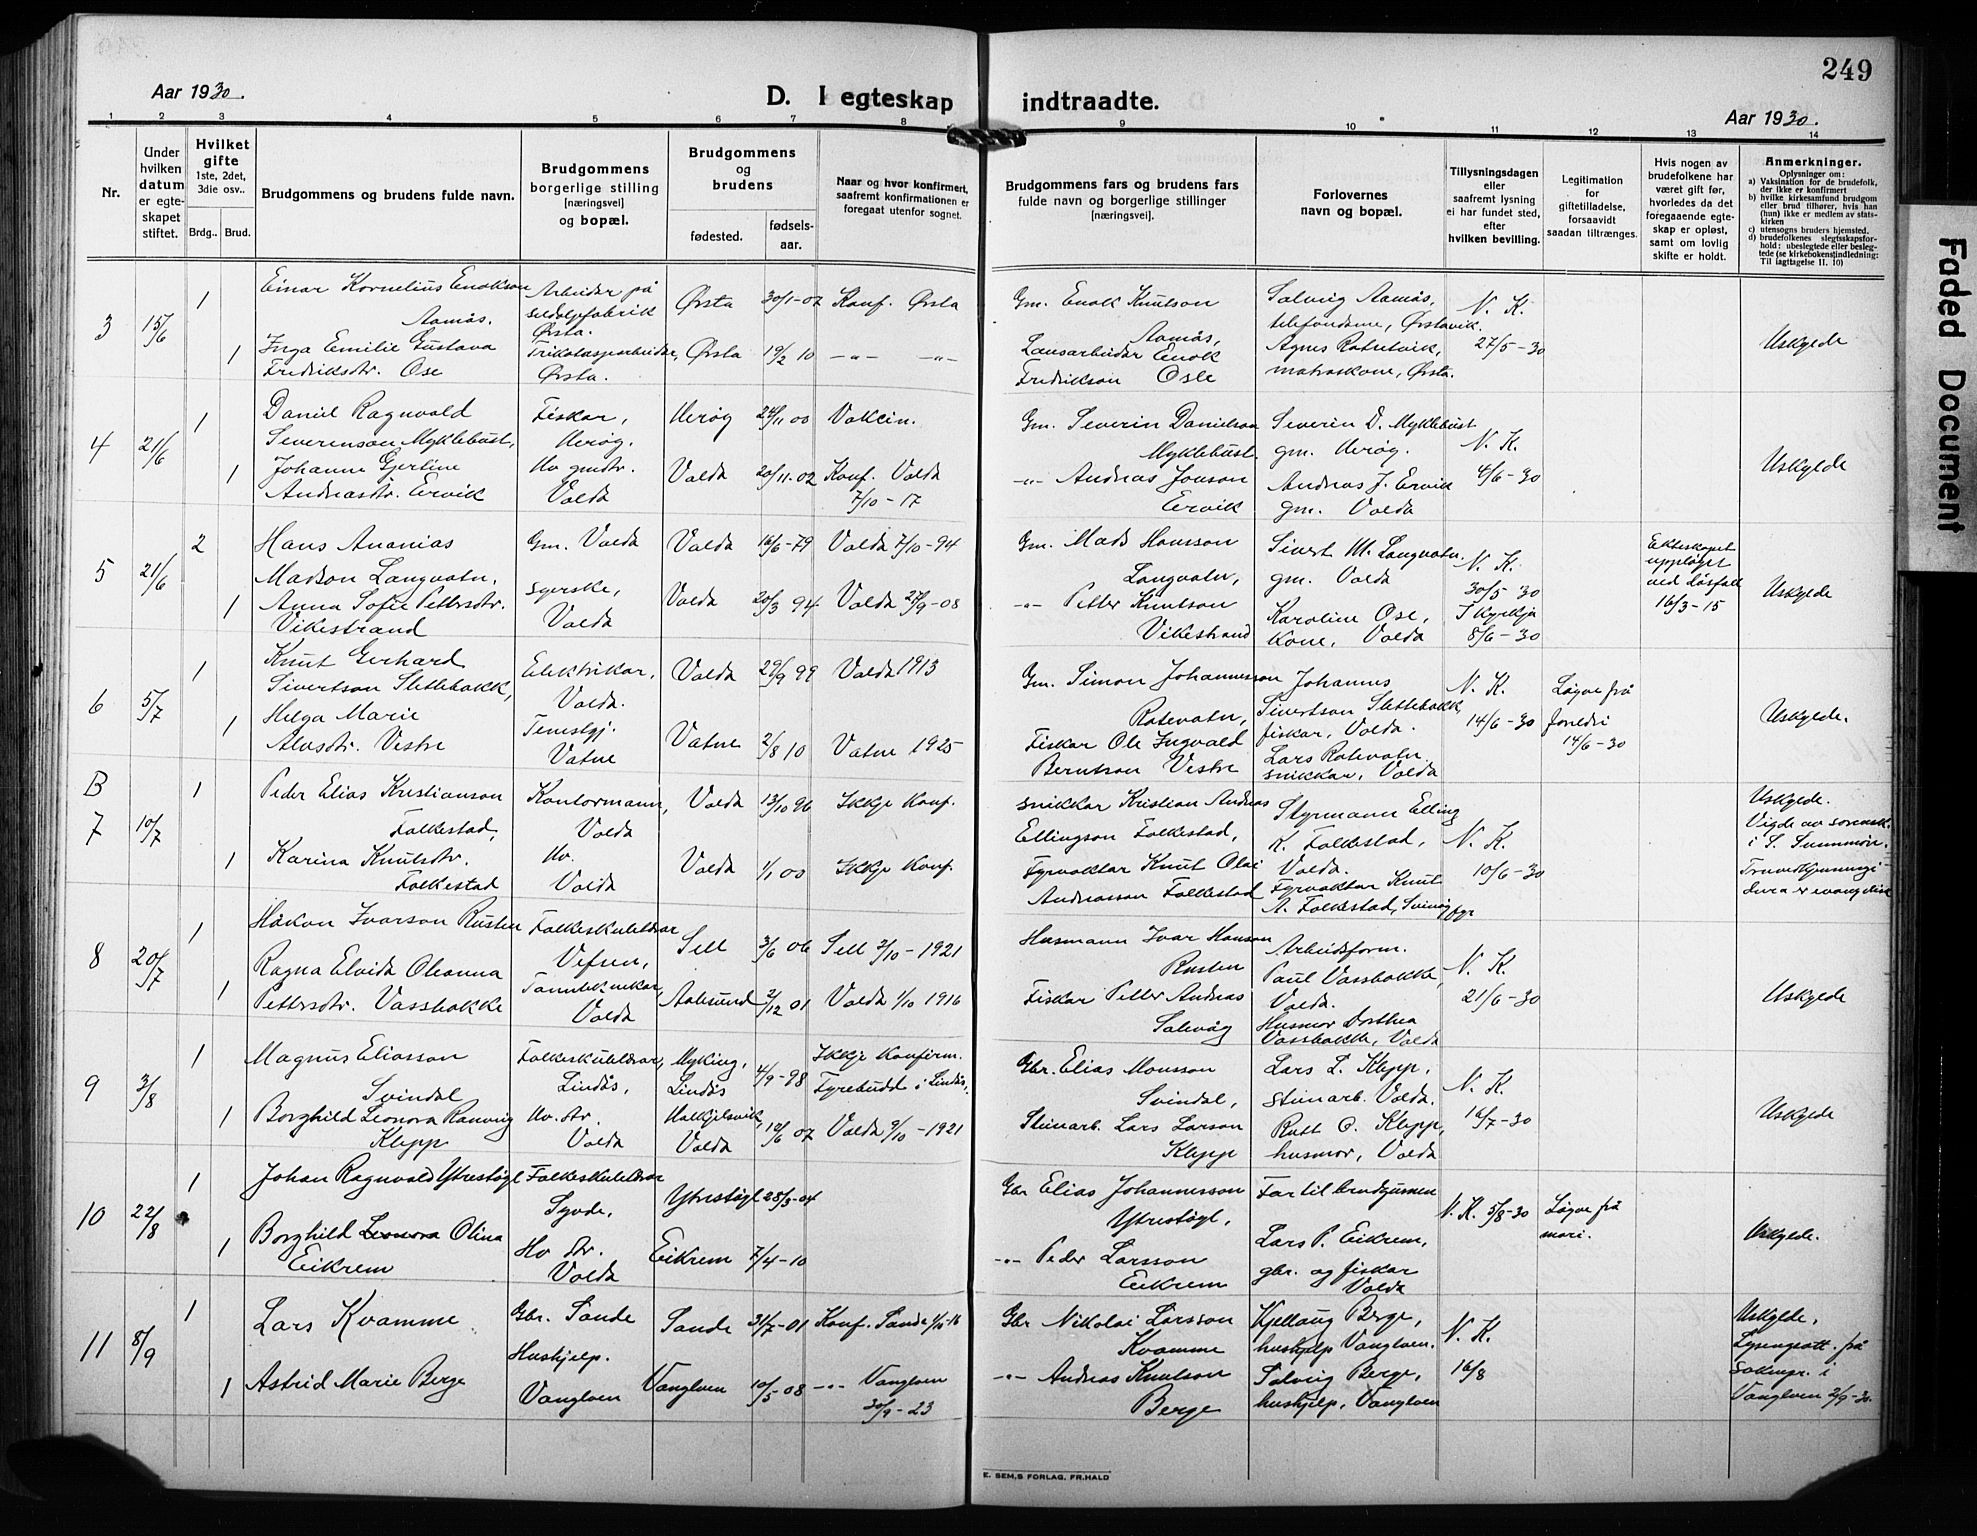 249
Aar 1930.
D. I egteskap indtraadte.
Aar 1930.
1 2 3 4 5 6 7 8 9 10 11 12 13 14
Nr.
Under hvilken datum er egteskapet stiftet.
Hvilket gifte 1ste, 2det, 3die osv..
Brdg.. Brud.
Brudgommens og brudens fulde navn.
Brudgommens borgerlige stilling [næringsvei] og bopæl.
Brudgommens og brudens
fødested. fødselsaar.
Naar og hvor konfirmert, saafremt konfirmationen er foregaat utenfor sognet.
Brudgommens fars og brudens fars fulde navn og borgerlige stillinger [næringsvei].
Forlovernes navn og bopæl.
Tillysningsdagen eller saafremt lysning ei har fundet sted, efter hvilken bevilling.
Legitimation for giftetilladelse, forsaavidt saadan tiltrænges.
Hvis nogen av brudefolkene har været gift før, hvorledes da det foregaaende egteskap er opløst, samt om lovlig skifte er holdt.
Anmerkninger.
Oplysninger om:
a) Vaksination for de brudefolk, der ikke er konfirmert
b) hvilke kirkesamfund brudgom eller brud tilhører, hvis han (hun) ikke er medlem av statskirken
c) utensogns bruders hjemsted.
d) brudefolkenes slegtsskapsforhold: ubeslegtede eller beslegtede (se kirkebokens indledning: Til iagttagelse II. 10)
3 15/6 1 Einar Kornelius Enokson Aamås. Arbeidar på sildoljefabrik Ørsta. Ørsta 30/1-02 Konf. Ørsta Gm. Enok Knutson Aamås, Solveig Aamås, telefondame, Ørstavik. N. K. 27/5-30 Uskylde
1 Inga Emilie Gustava Fredriksdtr. Ose Trikotasjearbeidar, Ørsta. Ørsta 19/2 10 -"- -"- Lausarbeidar Enok Fredrikson Osle Agnes Rotsetvik, matroskone, Ørsta.
4 21/6 1 Daniel Ragnvald Severinson Myklebust, Fiskar, Herøy. Herøy 24/11 00 Vakcin. Gm. Severin Danielson Myklebust. Severin D. Myklebust gm. Herøy. N. K. 4/6-30 Uskylde
1 Johanne Gjertine Andreasdtr. Ervik Hv gmdtr. Volda Volda 20/11-02 Konf. Volda 7/10-17 -"- Andreas Jonson Ervik Andreas J. Ervik gm. Volda
5 21/6 2 Hans Ananias Madson Langvatn. Gm. Volda Volda 16/6-79 Volda 7/10-94 Gm. Mads Hansson Langvatn, Sivert M. Langvatn. gm. Volda N. K. 30/5 30 I kyrkja 8/6-30 Ekteskapet uppløyst ved dåsfall 16/3-15 Uskylde
1 Anna Sofie Pettersdtr. Vikestrand syerske, Volda Volda 20/3 94 Volda 27/9-08 -"- Petter Knutson Vikestrand Karoline Ose, Kone, Volda
6 5/7 1 Knut Gerhard Sivertson Slettebakk, Elektrikar, Volda. Volda 29/9 99 Volda 1913 Gm. Simon Johannesson Rotevatn, Johannes Sivertson Slettebakk, fiskar, Volda. N. K. 14/6-30 Løyve frå foreldri 14/6-30 Uskylde.
1 Helga Marie Alvsdtr. Vestre Tenestgj. Vatne Vatne 2/8 10 Vatne 1925 Fiskar Ole Ingvald Berntson Vestre Lars Rotevatn snikkar, Volda
B 7 10/7 1 Peder Elias Kristianson Folkestad, Kontormann, Volda Volda 13/10 96 Ikkje konf. snikkar Kristian Andreas Ellingson Folkestad, Styrmann Elling K. Folkestad, Volda. N. K. 10/6-30 Uskylde. Vigde av sorensk. i S. Sunnmøre.
1 Karina Knutsdtr. Folkestad Hv. Volda Volda 1/1 00 Ikkje konf. Fyrvaktar Knut Olai Andreasson Folkestad Fyrvaktar Knut A. Folkestad, Svinøy fyr
8 20/7 1 Håkon Ivarson Rusten Folkeskulelærar Vefsen, Sell 3/6 06 Sell 2/10-1921 Husmann Ivar Hanson Rusten Arbeidsform. Paul Vassbakke, Volda. N. K. 21/6-30 Uskylde
1 Ragna Elvida Oleanna Pettersdtr. Vassbakke Tannteknikar, Volda Aalesund 2/12 01 Volda 1/10 1916 Fiskar Petter Andreas Salvåg Husmor Dorthea Vassbakke, Volda
9 3/8 1 Magnus Eliasson Svindal Folkeskulelærar, Lindås, Myking, Lindås 4/9-98 Ikkje konfirm. Fyrebudd i Lindås. Gbr. Elias Monsson Svindal, Lars L. Klepp, steinarb. Volda. N. K. 16/7-30 Uskylde
1 Borghild Leonora Ranveig Klepp Hv. dtr. Volda Halkjelsvik, Volda 12/6 07 Volda 9/10-1921 Steinarb. Lars Larson Klepp Rutt O. Klepp, husmor, Volda
10 22/8 1 Johan Ragnvald Ytrestøyl Folkeskulelærar Syvde, Ytrestøyl 28/3-04 Gbr Elias Johannesson Ytrestøyl, Far til brudgumen N. K. 5/8-30 Løyve frå mori. Uskylde.
1 Borghild Leonora Olina Eikrem Hv dtr. Volda Eikrem 7/4-10 -"- Peder Larsson Eikrem Lars P. Eikrem, gbr. og fiskar Volda
11 8/9 1 Lars Kvamme Gbr. Sande Sande 31/7-01 Konf. Sande 1/10-16 Gbr Nikolai Larsson Kvamme Kjellaug Berge, hushjelp Vanylven. N. K. 16/8 Uskylde. Lysingsatt. frå soknepr. i Vanylven 2/9-30.
1 Astrid Marie Berge Hushjelp. Vanylven Vanylven 10/5-08 -"- Vanylven 30/9-23 -"- Andreas Knutson Berge Solveig Berge, hushjelp, Vanylven
E. SEM,S FORLAG, FR.HALD
Faded Document